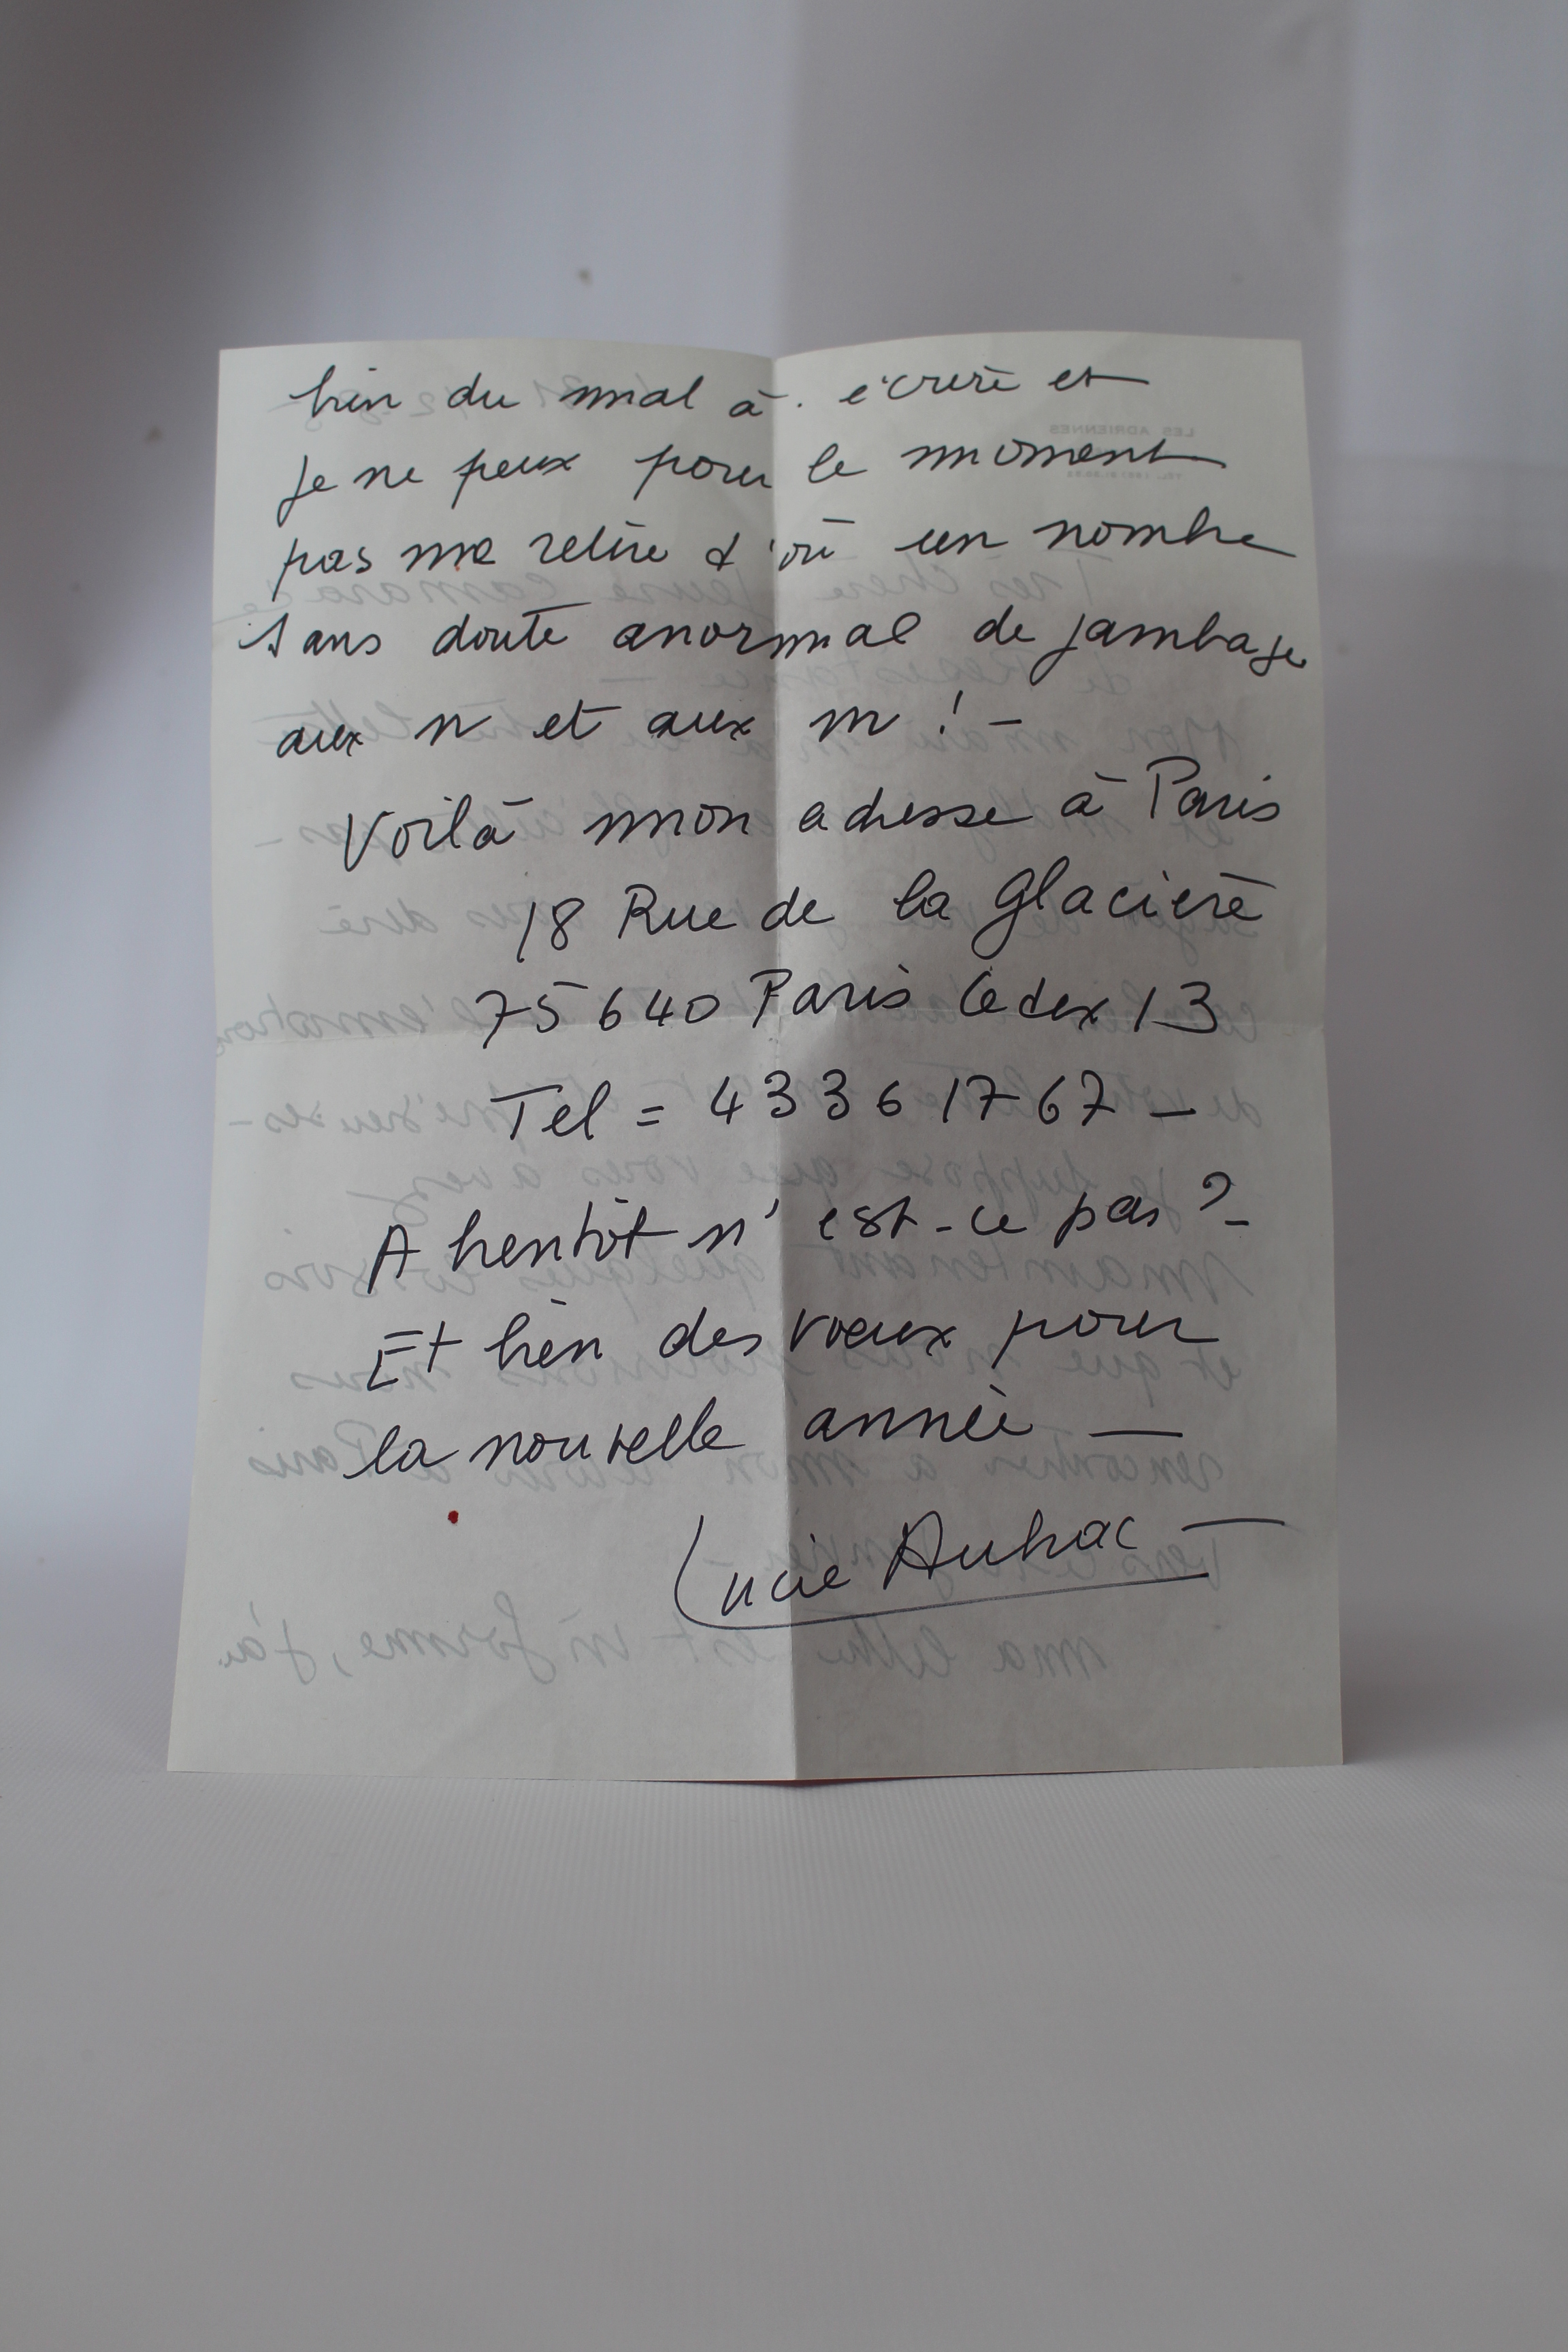 bien du mal à écrire et
je ne peux pour le moment
pas me relire d'où un nombre
sans doute anormal de jambages
aux n et aux m ! -
Voilà mon adresse à Paris
18 Rue de la Glacière
75640 Paris Cedex 13
Tel = 43 36 17 67 -
A bientôt n'est-ce pas ? -
Et bien des vœux pour
la nouvelle année —
Lucie Aubrac —